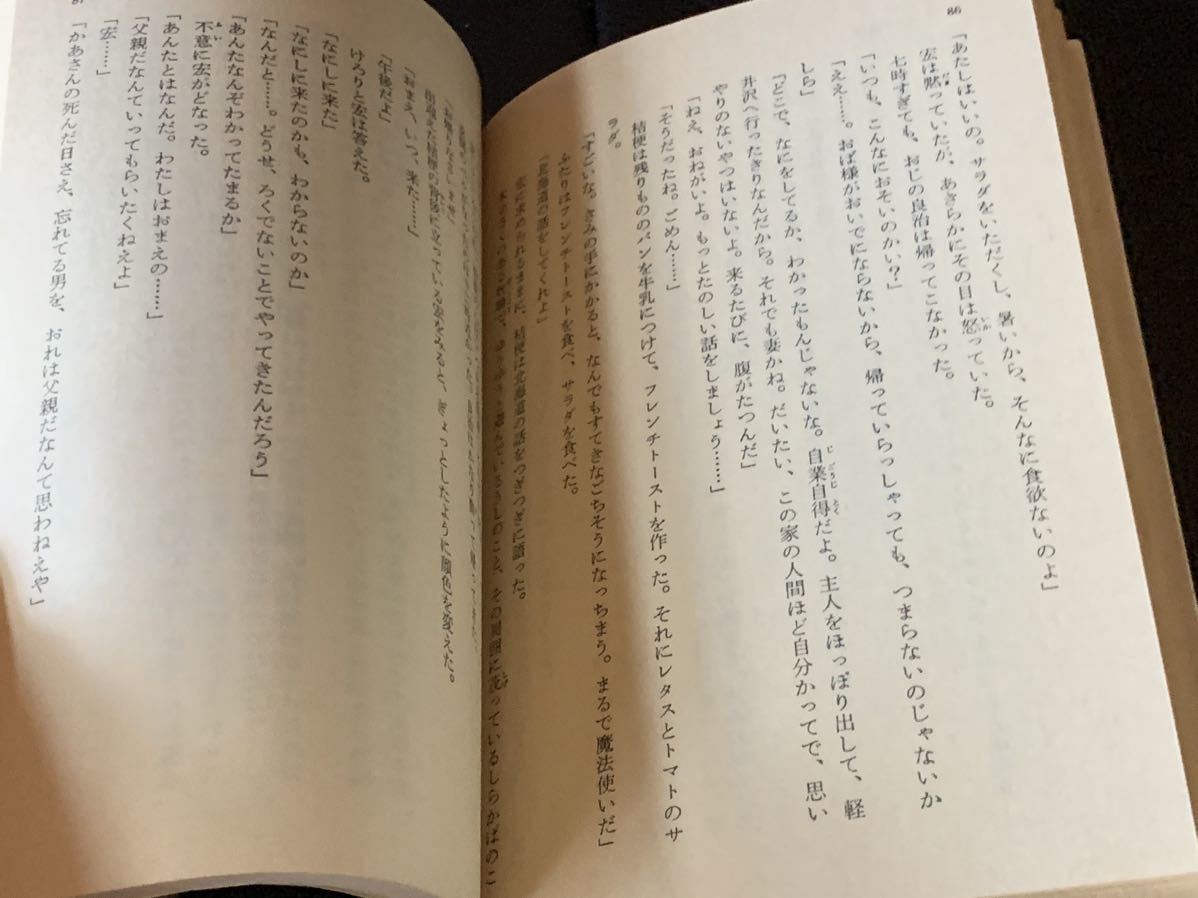 86
「あたしはいいの。サラダをいただくし、暑いから、そんなに食欲ないのよ」
宏は黙っていたが、あきらかにその日は怒っていた。
七時すぎても、おじの良治は帰ってこなかった。
「いつも、こんなにおそいのかい?」
「ええ……。おば様がおいでにならないから、帰っていらっしゃっても、つまらないのじゃないか
しら」
「どこで、なにをしてるか、わかったもんじゃないな。自業自得だよ。主人をほっぽり出して、軽
井沢へ行ったきりなんだから。それでも妻かね。だいたい、この家の人間ほど自分かってで、思い
やりのないやつはいないよ。来るたびに、腹がたつんだ」
「ねえ、おねがいよ。もっとたのしい話をしましょう……」
「そうだったね。ごめん……」
桔梗は残りもののパンを牛乳につけて、フレンチトーストを作った。それにレタスとトマトのサ
ラダ。
「すごいな。きみの手にかかると、なんでもすてきなごちそうになっちまう。まるで魔法使いだ」
ふたりはフレンチトーストを食べ、サラダを食べた。
「北海道の話をしてくれよ」
宏にせがられるままに、桔梗は北海道の話をつぎつぎに語った。
のこと、その周囲に茂っているしらかばのこ
87
「お帰りなさいませ」
出迎えた桔梗の背後に立っている宏をみると、ぎょっとしたように顔色を変えた。
「おまえ、いつ、来た……」
「午後だよ」
けろりと宏は答えた。
「なにしに来た」
「なにしに来たのかも、わからないのか」
「なんだと……。どうせ、ろくでないことでやってきたんだろう」
「あんたなんぞわかってたまるか」
不意に宏がどなった。
「あんたとはなんだ。わたしはおまえの……」
「父親だなんていってもらいたくねえよ」
「宏……」
「かあさんの死んだ日さえ、忘れてる男を、おれは父親だなんて思わねえや」